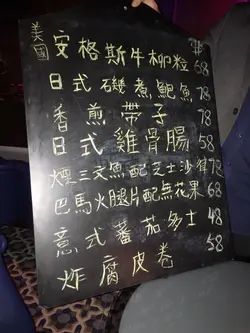 美國安格斯牛柳粒 $68
日式磯煮鮑魚 78
香煎帶子 78
日式雞骨腸 58
煙三文魚配芝士沙律 78
巴馬火腿片配無花果 68
意式蕃茄多士 48
炸腐皮卷 58